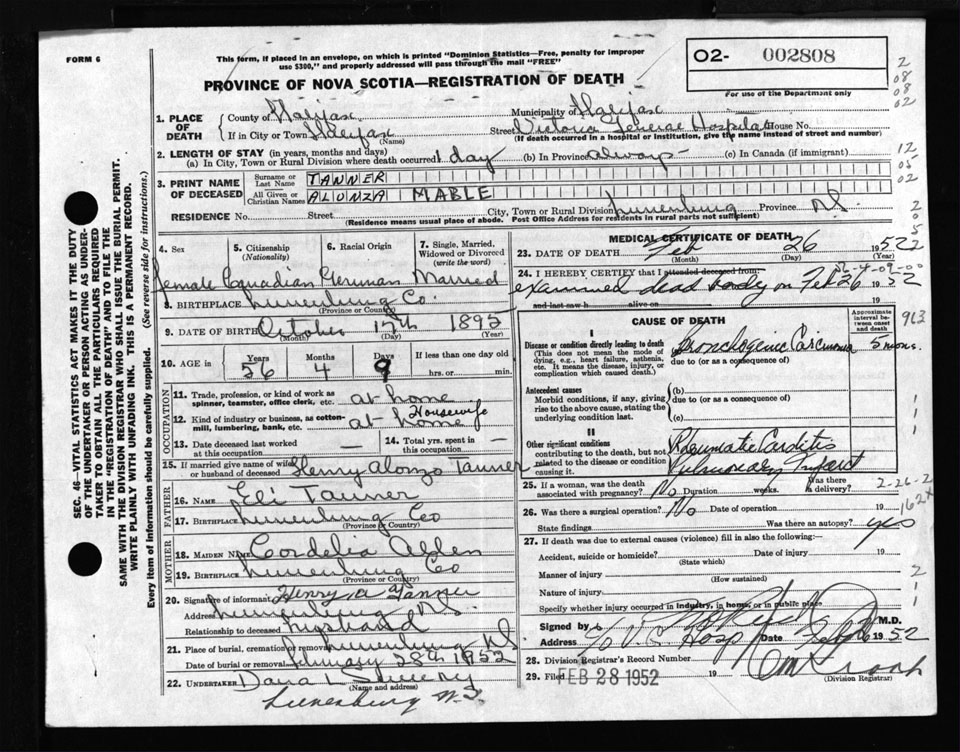 FORM 6
This form, if placed in an envelope, on which is printed "Dominion Statistics—Free, penalty for improper
use $300," and properly addressed will pass through the mail "FREE"
O2- 002808
For use of the Department only
PROVINCE OF NOVA SCOTIA—REGISTRATION OF DEATH
2
08
08
02
1. PLACE OF DEATH
County of Halifax Municipality of Halifax
If in City or Town Halifax (Name) Street Victoria General Hospital House No.
(If death occurred in a hospital or institution, give the name instead of street and number)
2. LENGTH OF STAY (in years, months and days)
(a) In City, Town or Rural Division where death occurred 1 day (b) In Province always - (c) In Canada (if immigrant)
12
05
02
3. PRINT NAME OF DECEASED
Surname or Last Name TANNER
All Given or Christian Names ALONZA MABLE
RESIDENCE No. Street City, Town or Rural Division Lunenburg Province N.S.
(Residence means usual place of abode. Post Office Address for residents in rural parts not sufficient)
2
0
5
4. Sex
5. Citizenship (Nationality)
6. Racial Origin
7. Single, Married, Widowed or Divorced (write the word)
Female Canadian German Married
8. BIRTHPLACE Lunenburg Co.
(Province or Country)
9. DATE OF BIRTH October 17th 1895
(Month) (Day) (Year)
10. AGE in
Years Months Days If less than one day old
56 4 9 hrs. or min.
OCCUPATION
11. Trade, profession, or kind of work as spinner, teamster, office clerk, etc. at home
12. Kind of industry or business, as cotton-mill, lumbering, bank, etc. at home Housewife
13. Date deceased last worked at this occupation —
14. Total yrs. spent in this occupation —
15. If married give name of wife or husband of deceased Henry Alonzo Tanner
FATHER
16. NAME Eli Tanner
17. BIRTHPLACE Lunenburg Co
(Province or Country)
MOTHER
18. MAIDEN NAME Cordelia Alden
19. BIRTHPLACE Lunenburg Co
(Province or Country)
20. Signature of informant Henry a Tanner
Address Lunenburg N.S.
Relationship to deceased husband
21. Place of burial, cremation or removal Lunenburg N.S.
Date of burial or removal February 28th 1952
22. UNDERTAKER Dana L Sweeny
(Name and address)
Lunenburg N.S.
MEDICAL CERTIFICATE OF DEATH
23. DATE OF DEATH Feb 26 1952
(Month) (Day) (Year)
2
24. I HEREBY CERTIFY that I attended deceased from:
2-4-09-00
examined dead body on Feb 26 19 52
and last saw h alive on 19
CAUSE OF DEATH
Approximate interval between onset and death
963
I
Disease or condition directly leading to death
(This does not mean the mode of dying, e.g. heart failure, asthenia, etc. It means the disease, injury, or complication which caused death.)
(a) Bronchogenic Carcinoma 5 mons.
due to (or as a consequence of)
Antecedent causes
Morbid conditions, if any, giving rise to the above cause, stating the underlying condition last.
(b)
due to (or as a consequence of)
(c)
II
Other significant conditions contributing to the death, but not related to the disease or condition causing it.
Rheumatic Carditis
Pulmonary Infarct
25. If a woman, was the death associated with pregnancy? No Duration weeks. Was there a delivery?
2-26-2
26. Was there a surgical operation? No Date of operation 19
State findings Was there an autopsy? yes
27. If death was due to external causes (violence) fill in also the following:
Accident, suicide or homicide? Date of injury 19
(State which)
Manner of injury
(How sustained)
Nature of injury
Specify whether injury occurred in industry, in home, or in public place
2
1
1
Signed by M.D.
Address V. G. Hosp Date Feb 26 1952
28. Division Registrar's Record Number
29. Filed FEB 28 1952 19
(Division Registrar)
SEC. 46—VITAL STATISTICS ACT MAKES IT THE DUTY
OF THE UNDERTAKER OR PERSON ACTING AS UNDER-
TAKER TO OBTAIN ALL THE PARTICULARS REQUIRED
IN THE "REGISTRATION OF DEATH" AND TO FILE THE
SAME WITH THE DIVISION REGISTRAR WHO SHALL ISSUE THE BURIAL PERMIT.
WRITE PLAINLY WITH UNFADING INK. THIS IS A PERMANENT RECORD.
Every item of Information should be carefully supplied. (See reverse side for instructions.)